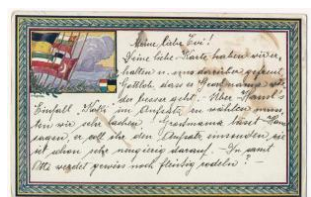 Meine liebe Evi!
Deine liebe Karte haben wir er-
halten u. uns darüber gefreut
Gottlob, dass es Grossmama wie-
der besser geht. – Über Hansl's
Einfall "Kutti" im Aufsatz zu wählen muss-
ten wir sehr lachen! Grossmama lässt Han
sagen, er soll ihr den Aufsatz einsenden sie
ist schon sehr neugierig darauf. – Du samt
Otti werdet gewiss noch fleissig rodeln? –